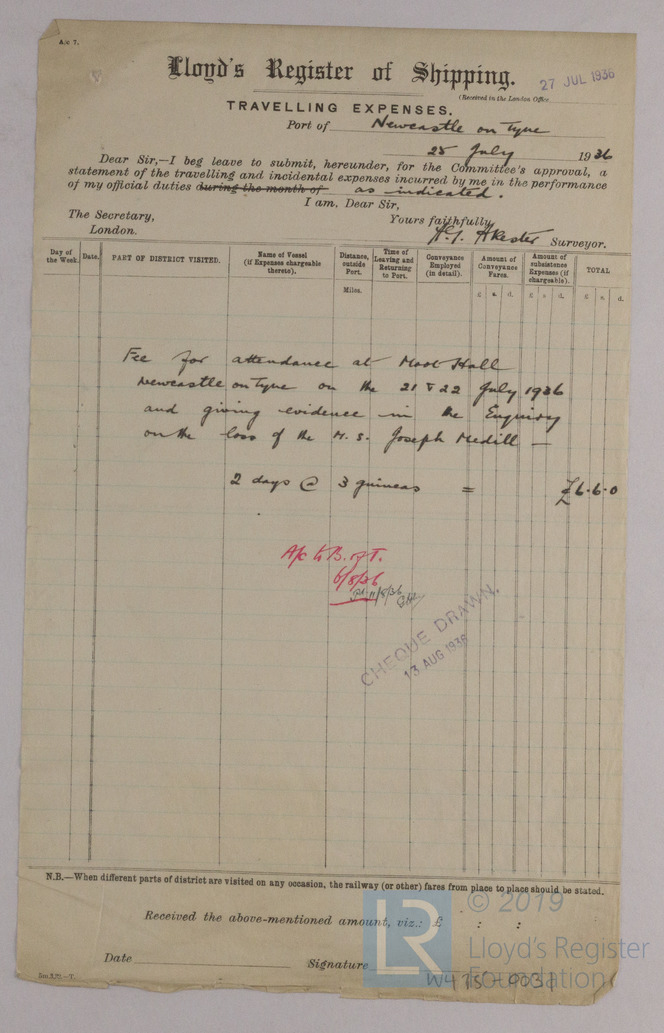 A/c 7.
Lloyd's Register of Shipping.
27 JUL 1936
(Received in the London Office
TRAVELLING EXPENSES.
Port of Newcastle on Tyne
25 July 1936
Dear Sir,—I beg leave to submit, hereunder, for the Committee's approval, a
statement of the travelling and incidental expenses incurred by me in the performance
of my official duties during the month of as indicated.
I am, Dear Sir,
The Secretary,
Yours faithfully,
London.
Surveyor.
Day of the Week. Date. PART OF DISTRICT VISITED. Name of Vessel (if Expenses chargeable thereto). Distance, outside Port. Time of Leaving and Returning to Port. Conveyance Employed (in detail). Amount of Conveyance Fares. Amount of subsistence Expenses (if chargeable). TOTAL
Miles. £ s. d. £ s. d. £ s. d.
Fee for attendance at Moot Hall
Newcastle on Tyne on the 21 & 22 July 1936
and giving evidence in the Enquiry
on the loss of the M.S. Joseph Medill —
2 days @ 3 guineas = £6.6.0
A/c to B. of T.
6/8/36
11/8/36
CHEQUE DRAWN.
13 AUG 1936
N.B.—When different parts of district are visited on any occasion, the railway (or other) fares from place to place should be stated.
© 2019
Received the above-mentioned amount, viz.: £ : :
LR
Lloyd's Register
Foundation
Date Signature
W475-0031